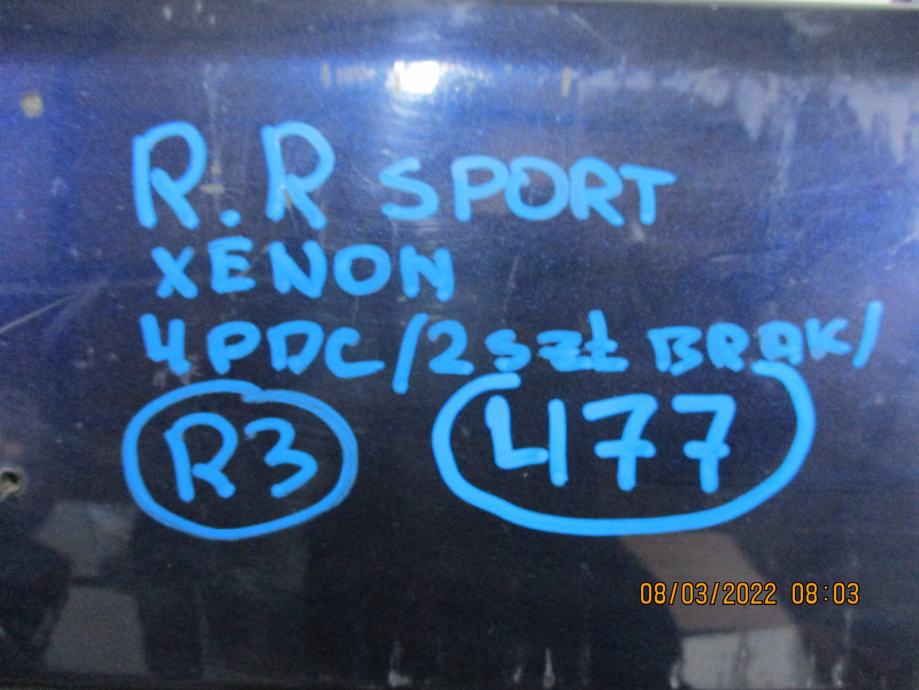 R.R SPORT
XENON
4 PDC /2 szt BRAK/
R3 477
08/03/2022 08:03